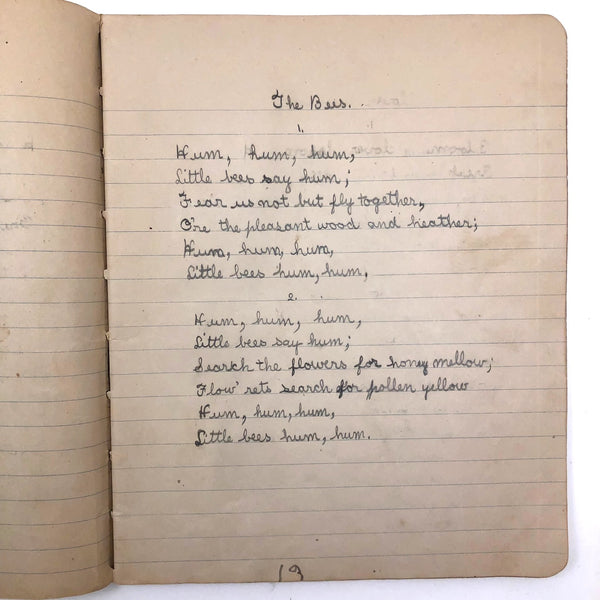 The Bees.
1.
Hum, hum, hum,
Little bees say hum;
Fear us not but fly together,
O're the pleasant wood and heather;
Hum, hum, hum,
Little bees hum, hum,
2.
Hum, hum, hum,
Little bees say hum;
Search the flowers for honey mellow;
Flow'rets search for pollen yellow
Hum, hum, hum,
Little bees hum, hum.
13